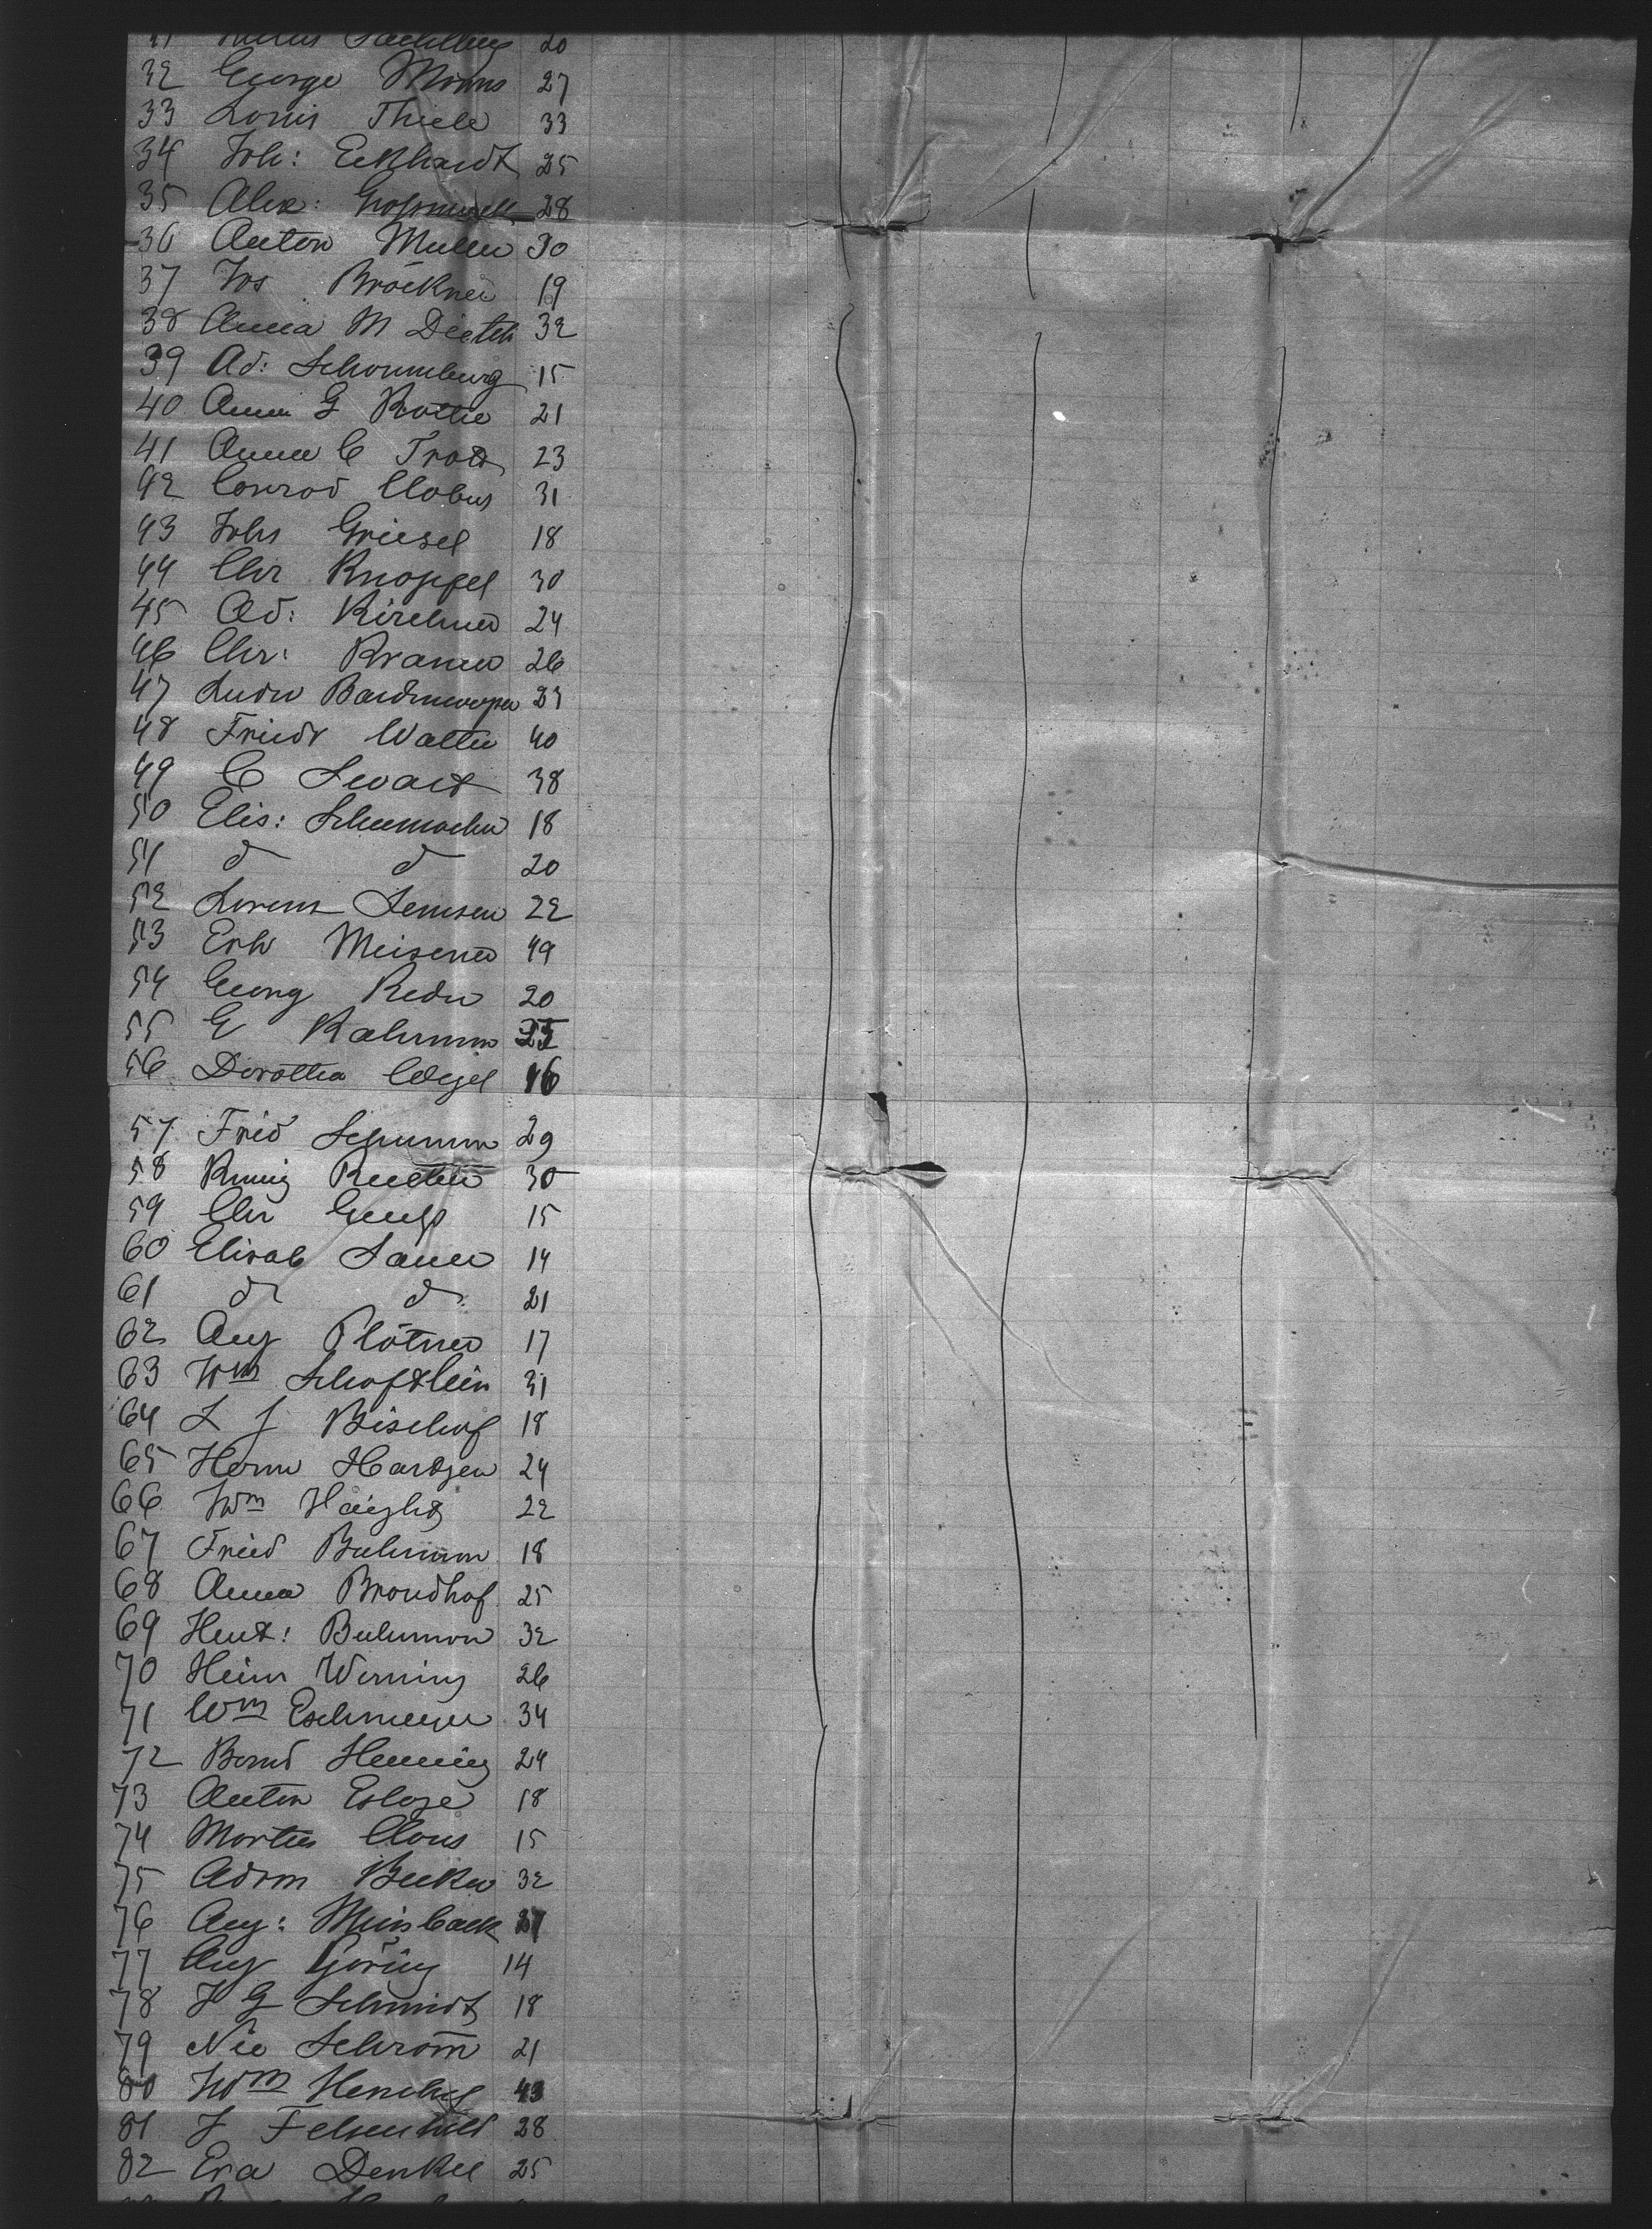 20
32 George Morris 27
33 Louis Thiele 33
34 Joh: Eckhardt 25
35 Alex: 28
36 Anton Muller 30
37 Jos Bröckner 19
38 Anna M Dietch 32
39 Ad: Schoumburg 15
40 Anna G Rotte 21
41 Anna C Trott 23
42 Conrad Clobus 31
43 Johs Griesel 18
44 Chr Knoppel 30
45 Ad: Kirchner 24
46 Chr: Kramer 26
47 Ludw
48 Friedr Walter 40
49 C Swart 38
50 Elis: Schumacher 18
51 d d 20
52 Lorenz Jensen 22
53 Erh Meisener 49
54 Georg Reder 20
55 E Kahrmann 25
56 Dorothea Weyel 16
57 Fried Schumm 29
58 30
59 Chr 15
60 Elisab Sauer 14
61 do do 21
62 Aug Plötner 17
63 Wm Schoftlein 31
64 L J Bischof 18
65 Herm Hartgen 24
66 Wm Haight 22
67 Fried Buhrman 18
68 Anna Brondhof 25
69 Buhrman 32
70 Heinr Werning 26
71 Wm Eschmeyer 34
72 Bernd Henning 24
73 Anton Esloge 18
74 Morten Clous 15
75 Adam Becker 32
76 Aug:
77 Aug Göring 14
78 J G Schmidt 18
79 Nic Schrom̄ 21
80 Wm Henchel 43
81 J Felsenheld 28
82 Eva Denkel 25